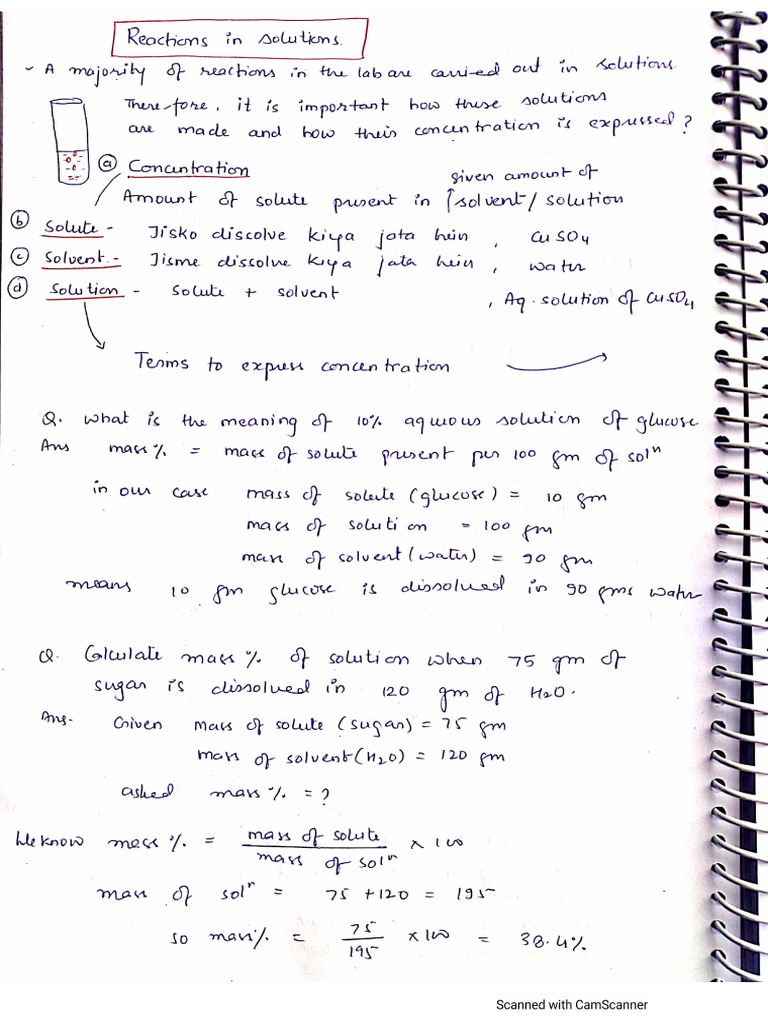 Reactions in solutions.
- A majority of reactions in the lab are carried out in solutions.
There-fore, it is important how these solutions
are made and how their concentration is expressed?
(a) Concentration
given amount of
Amount of solute present in ↑ solvent/solution
(b) Solute - Jisko discolve kiya jata hein, CuSO4
(c) Solvent - Jisme dissolve kiya jata hein, water
(d) Solution - Solute + solvent , Aq. solution of CuSO4
Terms to express concentration
Q. What is the meaning of 10% aquous solution of glucose
Ans mass% = mass of solute present per 100 gm of solⁿ
in our case mass of solute (glucose) = 10 gm
mass of solution = 100 gm
mass of solvent (water) = 90 gm
means 10 gm glucose is dissolved in 90 gms water
Q. Calculate mass % of solution when 75 gm of
sugar is dissolved in 120 gm of H2O.
Ans- Given mass of solute (sugar) = 75 gm
mass of solvent (H2O) = 120 gm
asked mass % = ?
We know mass % = mass of solute / mass of solⁿ × 100
mass of solⁿ = 75 + 120 = 195
so mass% = 75/195 × 100 = 38.4%
Scanned with CamScanner